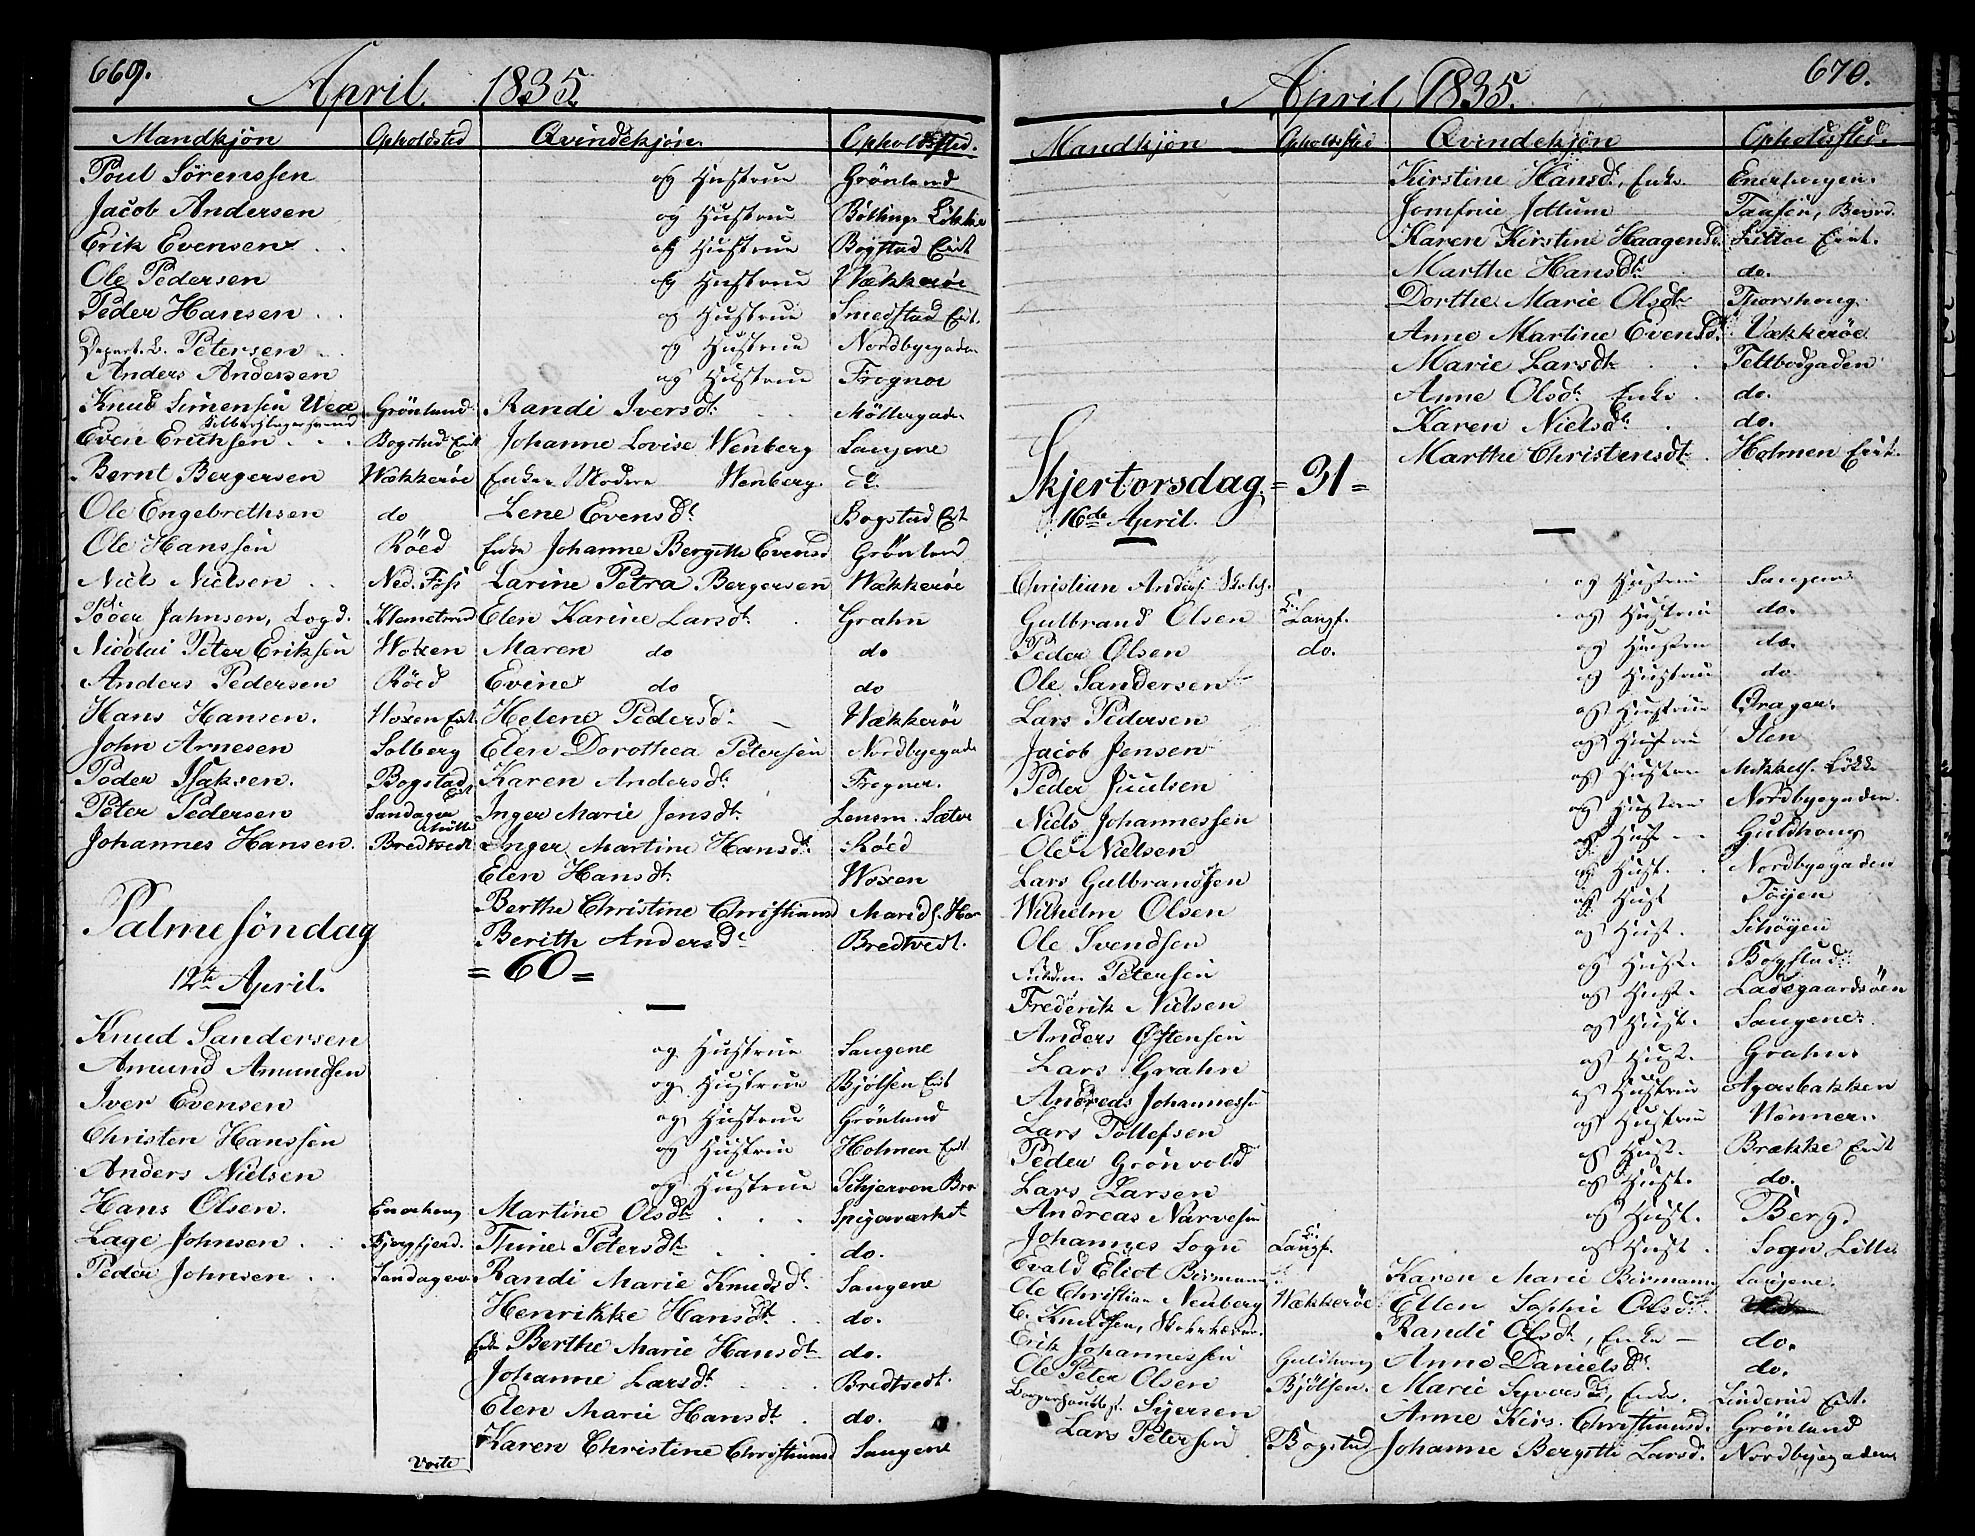 669.
April 1835.
Mandkjön Opholdsted Qvindekjön. Opholdssted.
Poul Sörenssen og Hustrue Grönland
Jacob Andersen og Hustrue Böllings Lökke
Erik Evensen og Hustrue Bogstad Eit
Ole Pedersen og Hustrue Wækkeröe
Peder Hansen og Hustrue Smedstad Eit.
Petersen og Hustrue Nordbyegaden
Anders Andersen og Hustrue Frogner
Knud Simensen Grönland Randi Iversdt. Möllergade.
Even Erichsen Bogstad Eit Johanne Lovise Wenberg Sangene
Bernt Bergersen Wækkeröe Enke Wenberg. do.
Ole Engebrethsen do Lene Evensdt. Bogstad Eit
Ole Hanssen Röed Enke Johanne Bergitte Evensd Grönland
Niels Nielsen Ned. Foss Larine Petra Bergersen Wækkeröe
Peder Jahnsen, Logd. Klemetsrud Elen Karine Larsdt. Grahn
Nicolai Peter Eriksen Woxen Maren do do
Anders Pedersen Röed Evine do do
Hans Hansen. Woxen Eit. Helene Pedersd. Wækkeröe
John Arnesen Solberg Elen Dorothea Petersen Nordbyegade
Peder Isaksen. Bogstad Eit Karen Andersdt. Frogner.
Peter Pedersen Sandager Inger Marie Jensdt. Lensm. Sæter
Johannes Hansen. Bredtvedt Inger Martine Hansdt. Röed
Elen Hansdt. Woxen
Berthe Christine Christiansd
Palmesöndag Berith Andersdt. Bredtvedt.
12te April. = 60 =
Knud Sandersen og Hustrue Sangene
Amund Amundsen og Hustrue Bjölsen Eit
Iver Evensen og Hustrue Grönland
Christen Hanssen og Hustrue Holmen Eit
Anders Nielsen og Hustrue Schjerven Bro
Hans Olsen. Enerhoug Martine Olsdt. Spigerværket
Lage Johnsen Bjergfjerd. Thine Petersdt. do.
Peder Johnsen Sandager Randi Marie Knudsdt. Sangene
Henrikke Hansdt. do.
Enke Berthe Marie Hansdt. do.
Johanne Larsdt. Bredtvedt.
Elen Marie Hansdt. do.
Karen Christine Christiansd Sangene
Verte
670.
April 1835.
Mandkjön Opholdssted Qvindekjön Opholdssted.
Kirstine Hansdt. Enke.
Jomfrue Jottum
Karen Kirstine Haagensd. Eit.
Marthe Hansdt. do.
Dorthe Marie Olsdt. Thorshoug.
Anne Martine Evensd. Vækkeröe
Marie Larsdt. Teltbodgaden
Anne Olsdt. Enke do.
Karen Nielsdt. do.
Marthe Christensdt. Holmen Eit.
Skjertorsdag = 31 =
16de April.
Christian Anders. og Hustrue Sangene
Gulbrand Olsen L. Langf. og Hustrue do.
Peder Olsen do. og Hustrue do.
Ole Sandersen og Hustrue do
Lars Pedersen og Hustrue Drager.
Jacob Jensen og Hustrue Ilen
Peder Juulsen og Hustrue Mikkels. Lökke
Niels Johannessen og Hustrue Nordbyegaden.
Ole Nielsen og Hust. Guldhoug
Lars Gulbrandsen og Hust. Nordbyegaden
Wilhelm Olsen og Hust Töyen
Ole Svendsen og Hust. Schöyen
Petersen og Hust. Bogstad
Frederik Nielsen og Hust. Ladegaardsöen
Anders Östensen og Hust. Sangene.
Lars Grahn og Hust. Grahn.
Andreas Johannessen og Hustrue Agersbakken
Lars Tollefsen og Hustrue Wenner.
Peder Grönvold og Hust. Brække Eit
Lars Larsen og Hust. do.
Andreas Narvesen og Hust. Berg.
Johannes Sogn L. Langf. og Hust. Sogn Lille
Evald Eliot Birmann Karen Marie Birmann Sangene.
Ole Christian Neuberg Wækkeröe Ellen Sophie Olsdt.
C. Knudsen, Randi Olsdt, Enke do.
Erik Johannessen Guldhoug Anne Danielsdt. do.
Ole Peter Olsen Bjölsen. Marie Syversdt., Enke. Linderud Eit.
Syersen Anne Kirs. Christiansd. Grönland
Lars Petersen Bogstad Johanne Bergitte Larsd. Nordbyegaden